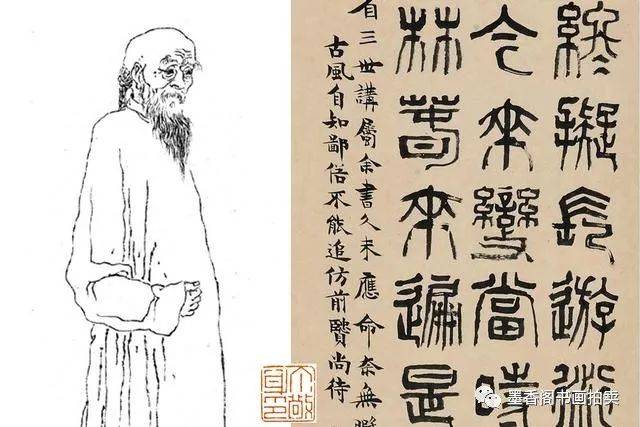 終擬長遊衍
今來變當時
林春來遍是
自三世講屬余書久未應命奈無
古風自知鄙俗不能追仿前賢尚待
墨香阁书画拍卖